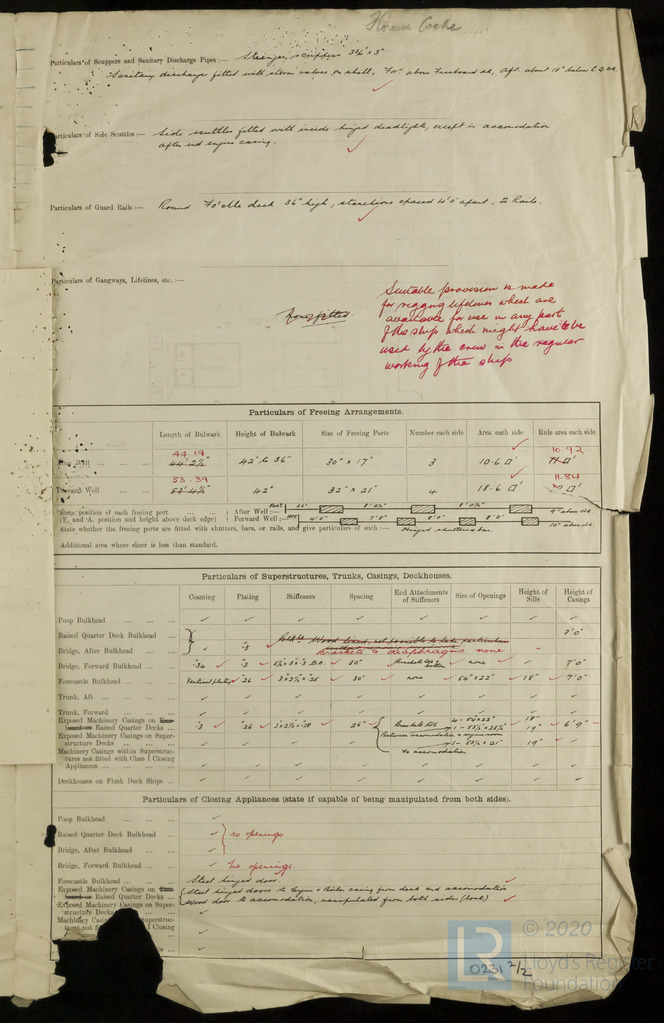 Particulars of Scuppers and Sanitary Discharge Pipes :— scuppers
Sanitary discharge fitted with storm valves on shell, For'd above Freeboard dk, Aft about 18" below
Particulars of Side Scuttles :— Side scuttles fitted with inside hinged deadlights, except in accomodation
after end engine casing.
Particulars of Guard Rails :— Round Fo'cle deck 36" high, stanchions spaced 4'0" apart, 2 Rails.
Particulars of Gangways, Lifelines, etc. :—
Suitable provision is made
for rigging lifelines which are
available for use in any part
of the ship which might have to be
used by the crew in the regular
working of the ship
Particulars of Freeing Arrangements.
Length of Bulwark Height of Bulwark Size of Freeing Ports Number each side Area each side Rule area each side
44.19 10.92
Well 44'2½" 42" to 36" 30" × 17" 3 10.6 □'
53.39 11.84
Forward Well 42" 32" × 21" 4 18.6 □'
State position of each freeing port After Well :—
(F. and A. position and height above deck edge) Forward Well :—
State whether the freeing ports are fitted with shutters, bars, or rails, and give particulars of such :— Hinged shutters
Additional area where sheer is less than standard.
Particulars of Superstructures, Trunks, Casings, Deckhouses.
Coaming Plating Stiffeners Spacing End Attachments of Stiffeners Size of Openings Height of Sills Height of Casings
Poop Bulkhead
Raised Quarter Deck Bulkhead 3'0"
Bridge, After Bulkhead .3 Brackets & diaphragms none
Bridge, Forward Bulkhead .34 .3 30" none 7'0"
Forecastle Bulkhead Vertical plating .26 30" none 54" × 22" 18" 7'0"
Trunk, Aft
Trunk, Forward
Exposed Machinery Casings on Raised Quarter Decks .3 .26 26" 18" 6'9"
Between accomodation & engine room 19"
Exposed Machinery Casings on Superstructure Decks 19"
to accomodation
Machinery Casings within Superstructures not fitted with Class I Closing Appliances
Deckhouses on Flush Deck Ships
Particulars of Closing Appliances (state if capable of being manipulated from both sides).
Poop Bulkhead
Raised Quarter Deck Bulkhead no openings
Bridge, After Bulkhead
Bridge, Forward Bulkhead no openings
Forecastle Bulkhead Steel hinged door.
Exposed Machinery Casings on Raised Quarter Decks Steel hinged doors to Engine & Boiler casing from deck and accomodation
Wood door to accomodation, manipulated from both sides (lock)
Exposed Machinery Casings on Superstructure Decks
Machinery Superstruc-
Closing
© 2020
Lloyd's Register
Foundation
0231 2/2